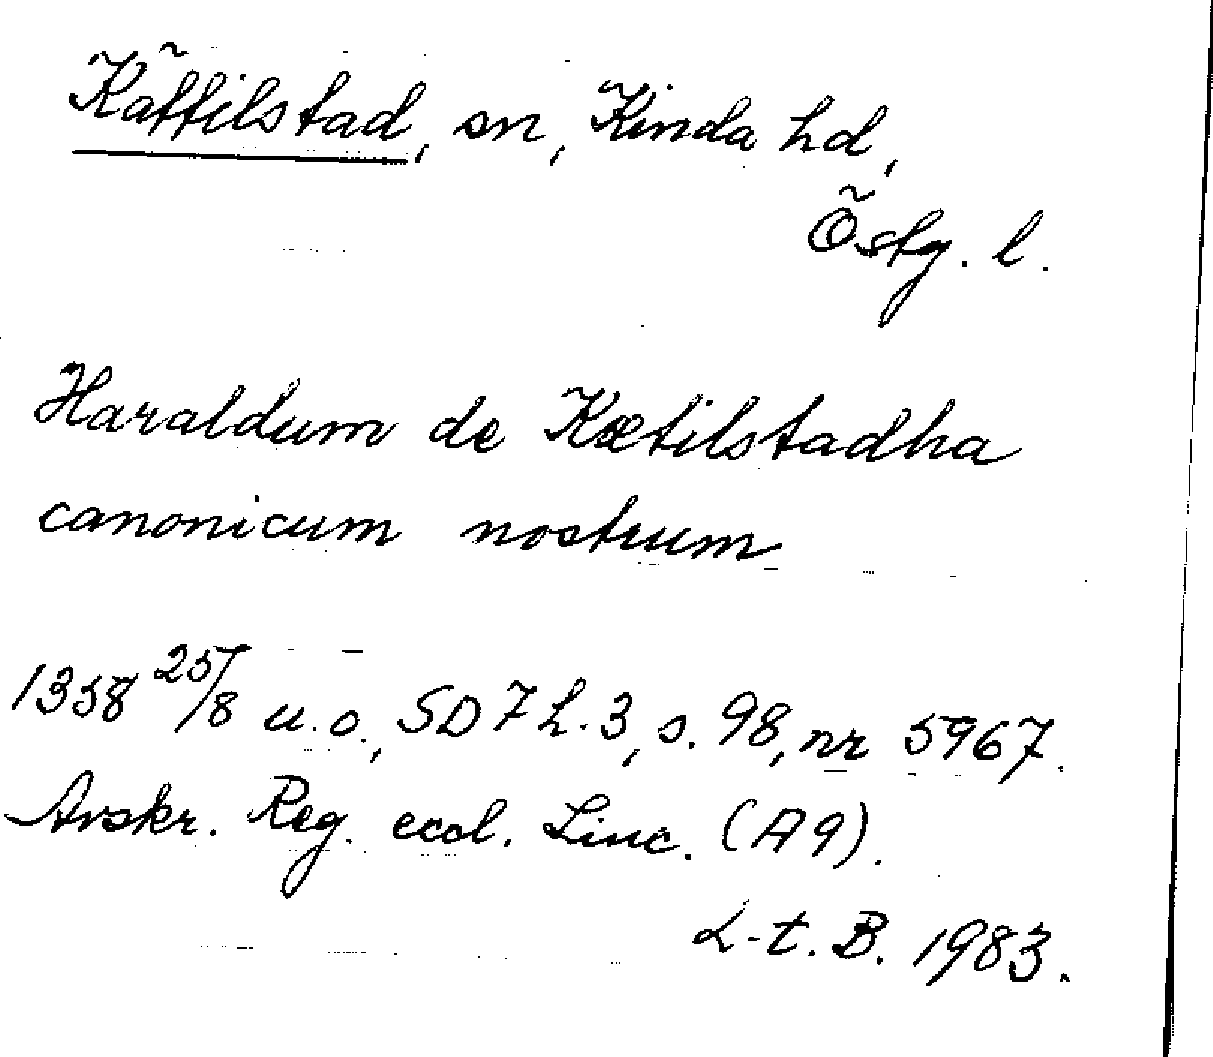 Kättilstad, sn, Kinda hd,
Östg. l.
Haraldum de Kætilstadha
canonicum nostrum
1358 25/8 u.o., SD 7 h. 3, s. 98, nr 5967.
Avskr. Reg. eccl. Linc. (A 9).
L-t. B. 1983.